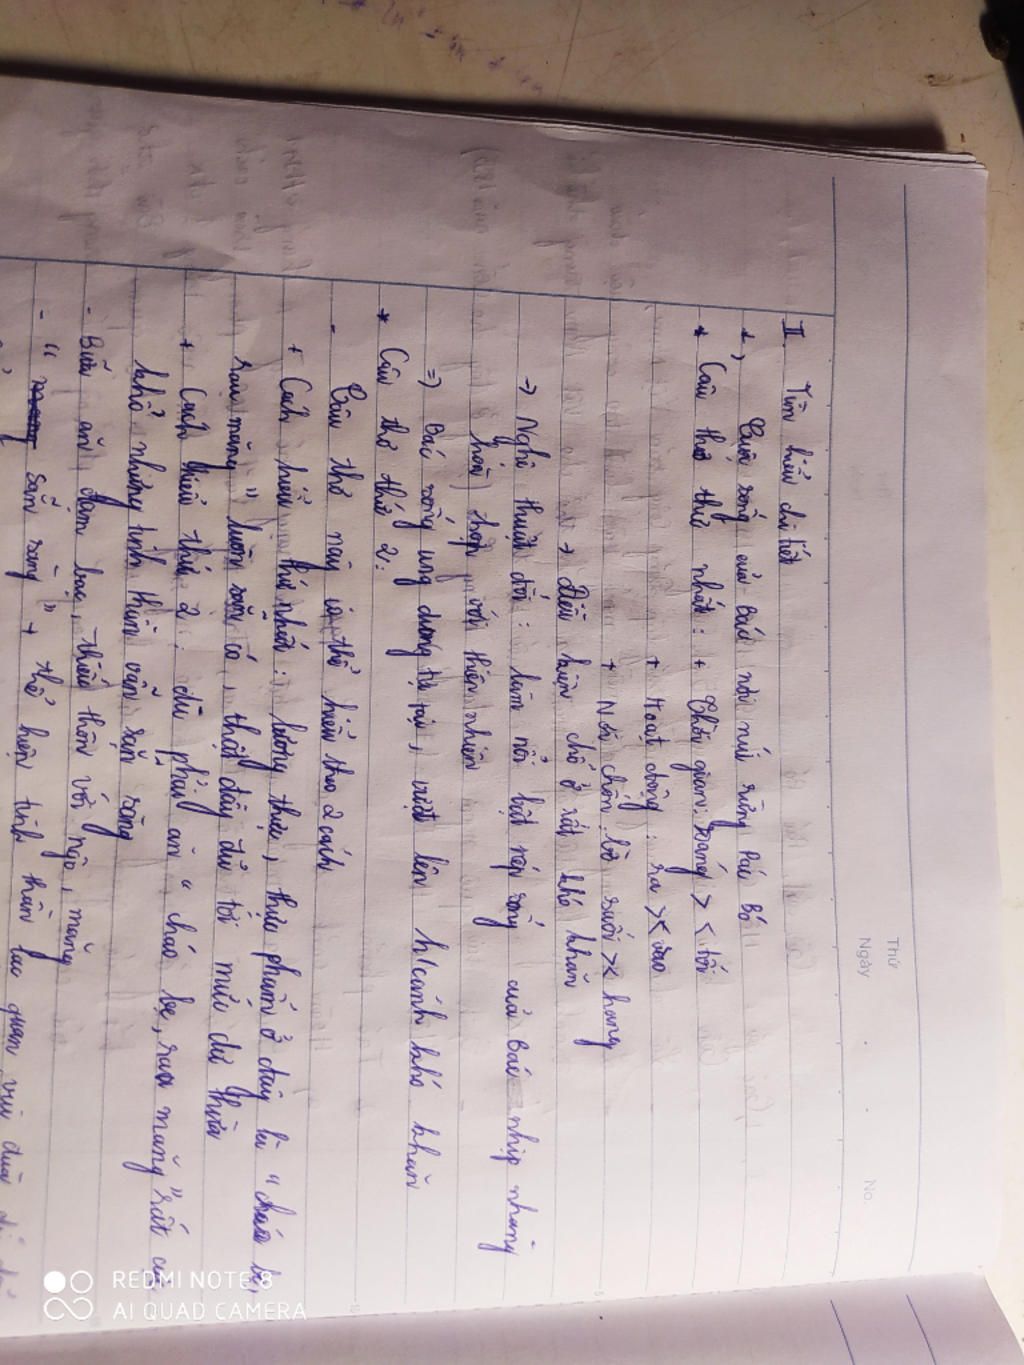 Thứ
Ngày No.
II. Tìm hiểu chi tiết
1, Cuộc sống của Bác nơi núi rừng Pác Bó
* Câu thơ thứ nhất: + Thời gian: sáng > < tối
+ Hoạt động: ra >< vào
+ Nơi chốn: bờ suối >< hang
→ Điều kiện chỗ ở rất khó khăn
→ Nghệ thuật đối: làm nổi bật nếp sống của Bác nhịp nhàng
hòa hợp với thiên nhiên
=) Bác sống ung dung tự tại, vượt lên h/cảnh khó khăn
* Câu thơ thứ 2:
- Câu thơ này có thể hiểu theo 2 cách
+ Cách hiểu thứ nhất: lương thực, thực phẩm ở đây là "cháo bẹ,
rau măng" luôn sẵn có, thật đầy đủ tới mức dư thừa
+ Cách hiểu thứ 2: dù phải ăn "cháo bẹ, rau măng" rất cực
khổ nhưng tinh thần vẫn sẵn sàng
- Bữa ăn đạm bạc, thiếu thốn với ngô, măng
- "sẵn sàng" + thể hiện tinh thần lạc quan vui đùa
REDMI NOTE 8
AI QUAD CAMERA